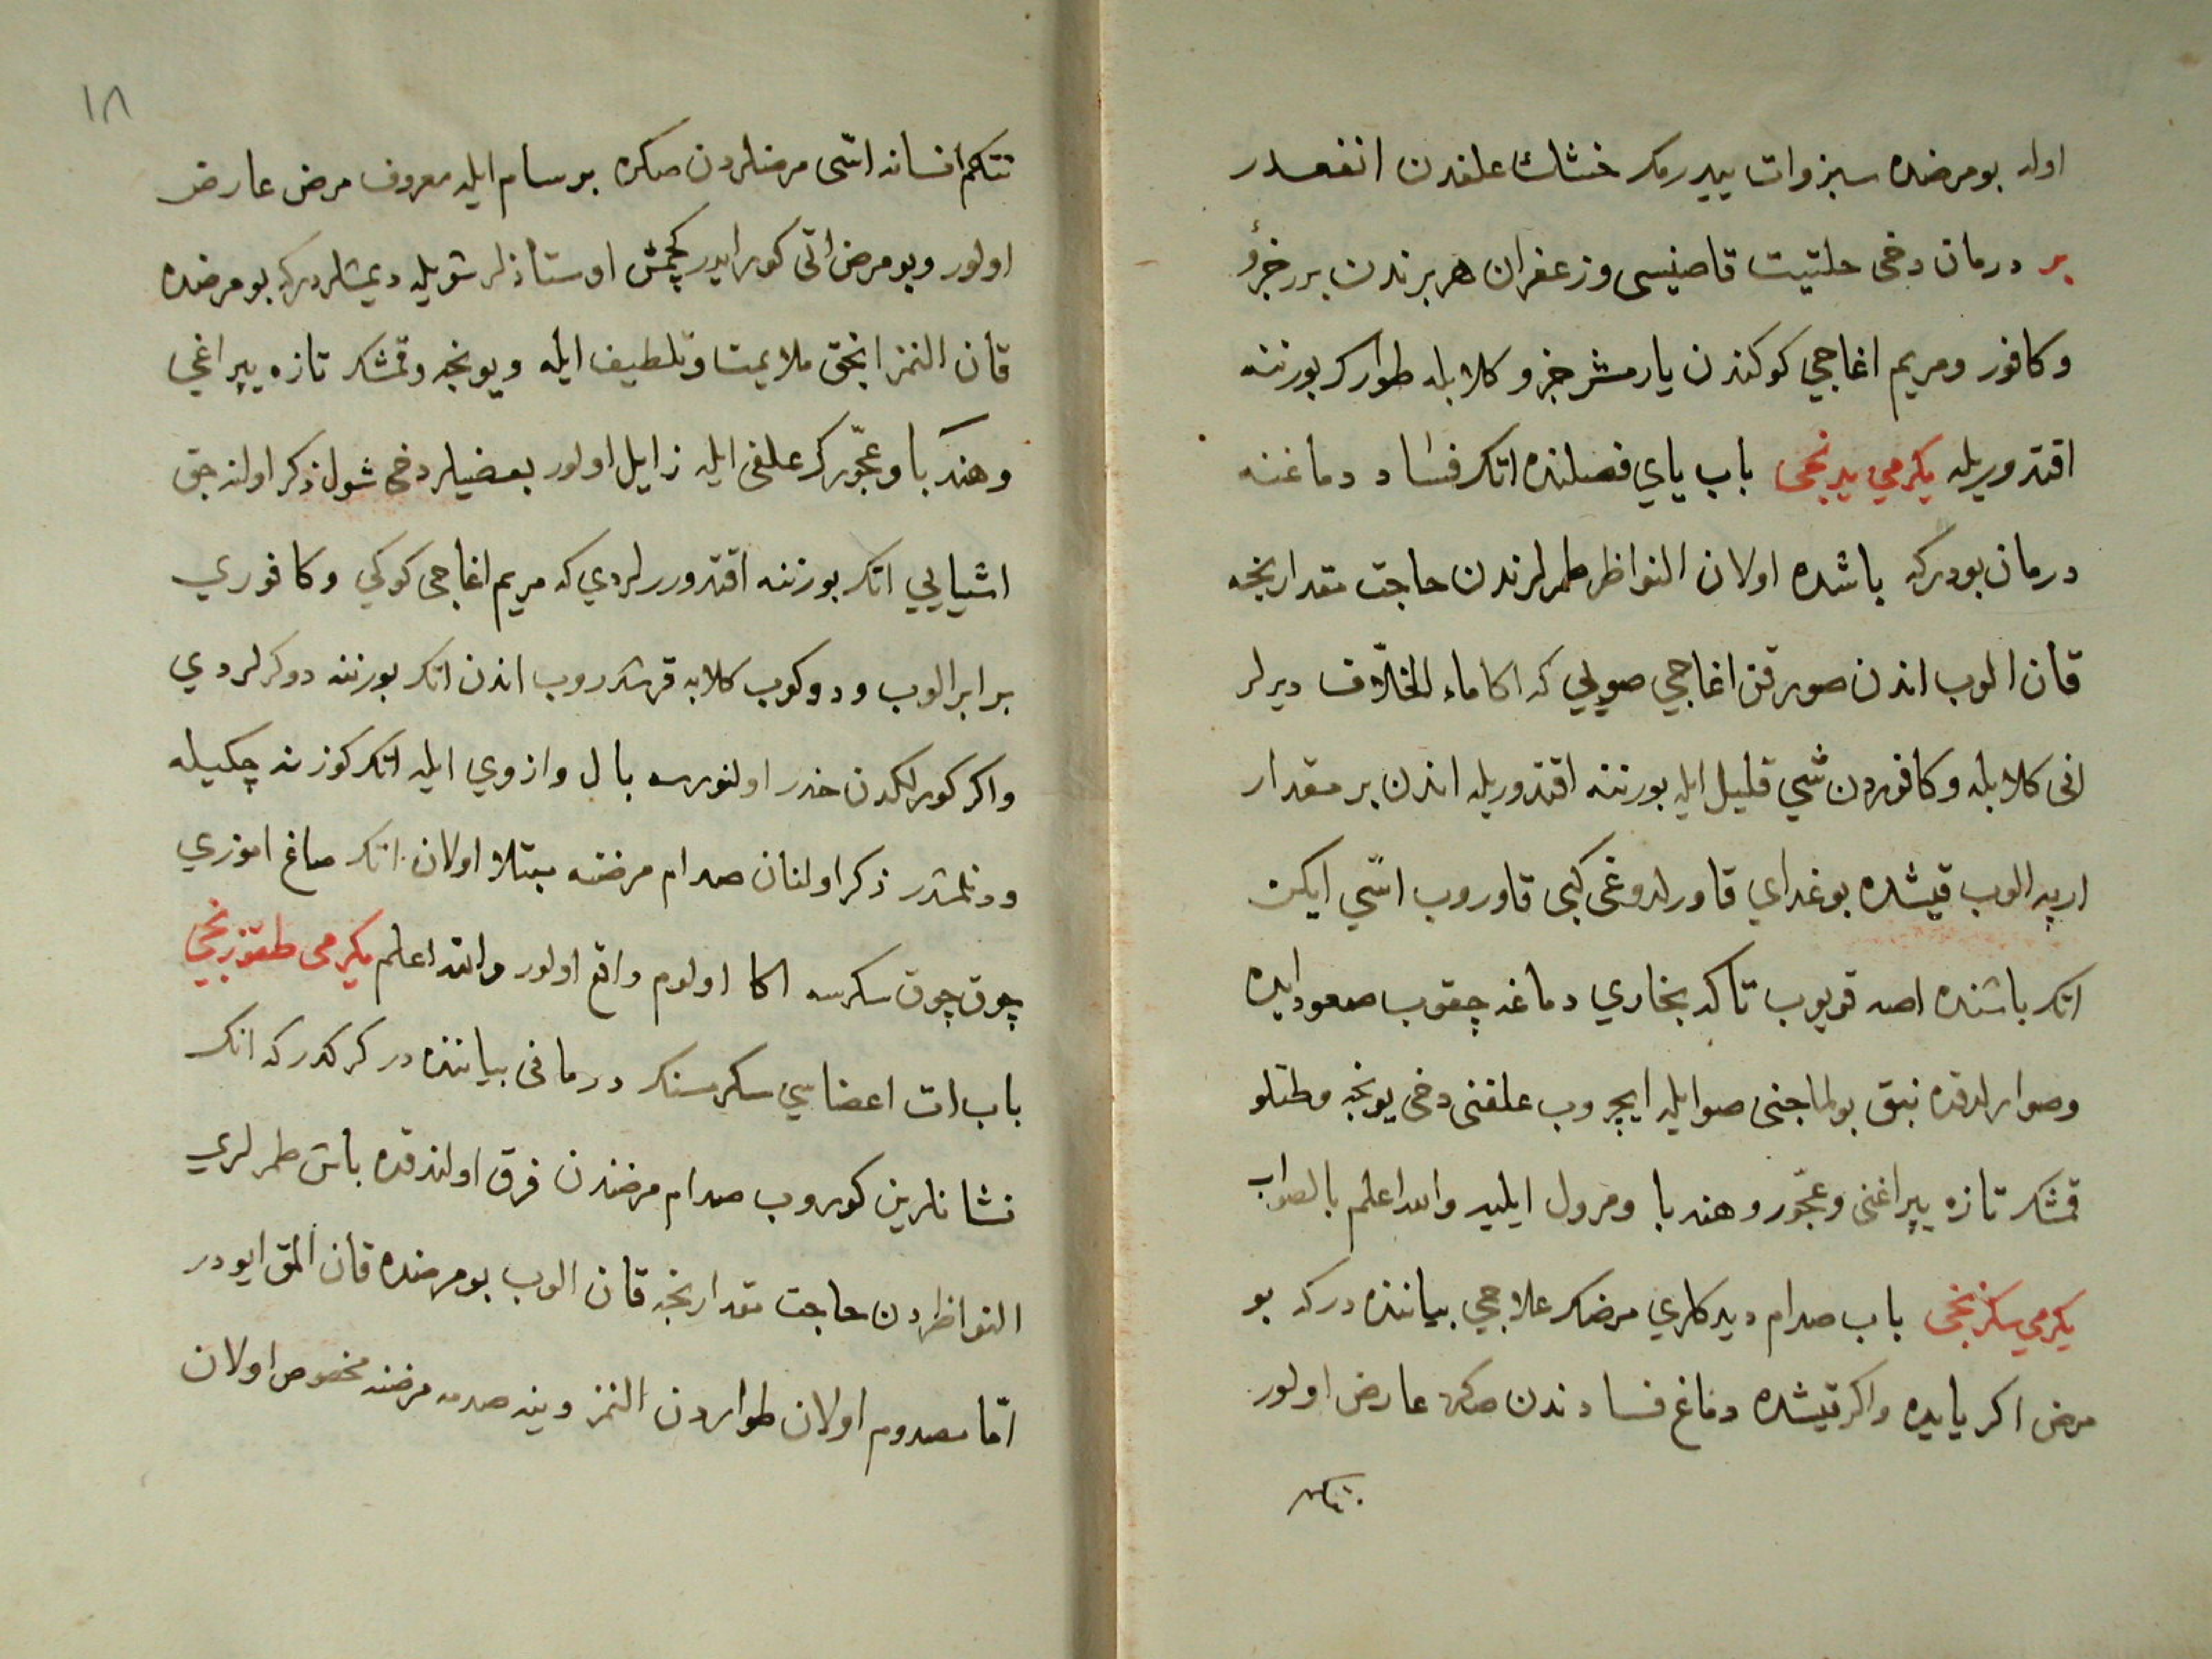 اوله بو مرضده سبزوات ييدرمك خشك علفدن انفعدر
بر درمان دخى حلتيت قاصنيسى وزعفران هر برندن برر جزؤ
وكافور ومريم اغاجي كوكندن يارمشر جزو كلابله طوارك بورننه
اقتدوريله يكرمي يدنجى باب ياي فصلنده اتك فساد دماغنه
درمان بودركه باشده اولان النواظر طمرلرندن حاجت مقدارنجه
قان الوب اندن صورقن اغاجي صويي كه اكا ماء الخلاف ديرلر
انى كلابله وكافوردن شي قليل ايله بورننه اقتدوريله اندن بر مقدار
ارپه الوب قيشده بوغداي قاورلدوغى كبى قاوروب اسّي ايكن
اتك باشنده اصه قويوب تاكه بخاري دماغه چقوب صعود ايده
وصوارلدقده نبق بولماجنى صوايله ايچروب علفنى دخى يونجه وطتلو
قمشك تازه يپراغنى وعجّور وهندبا ومرول ايليه والله اعلم بالصواب
يكرمي سكزنجى باب صدام ديدكلري مرضك علاجي بياننده دركه بو
مرض اكر يايده واكر قيشده دماغ فسادندن صكره عارض اولور
نتكم
١٨
نتكم انسانه اسّى مرضلردن صكره برسام ايله معروف مرض عارض
اولور وبو مرض اتى كور ايدر كچمش اوستاذلر شويله ديمشلردركه بو مرضده
قان النمز انجق ملايمت وتلطيف ايله ويونجه وقمشك تازه يپراغي
وهندبا وعجّورك علفى ايله زايل اولور بعضيلر دخى شول ذكر اولنه جق
اشيايي اتك بورننه اقتدورلردي كه مريم اغاجى كوكي وكافوري
برابر الوب ودوكوب كلابه قرشدروب اندن اتك بورننه دوكرلردي
واكر كورلكدن حذر اولنورسه بال وازوي ايله اتك كوزنه چكيله
ودنلمشدر ذكر اولنان صدام مرضنه مبتلا اولان اتك صاغ اموزي
چوق چوق سكرسه اكا اولوم واقع اولور والله اعلم يكرمى طقوزنجي
باب ات اعضاسي سكرمسنك درمانى بياننده در كركدركه انك
نشانلرين كوروب صدام مرضندن فرق اولندقده باش طمرلري
النواظردن حاجت مقدارنجه قان الوب بو مرضده قان المق ايودر
امّا مصدوم اولان طواردن النمز وينه صدمه مرضنه مخصوص اولان